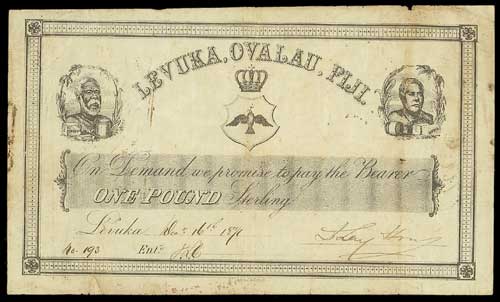 LEVUKA, OVALAU, FIJI.
On Demand we promise to pay the Bearer
ONE POUND Sterling
Levuka 16th
No. 193 Entd.